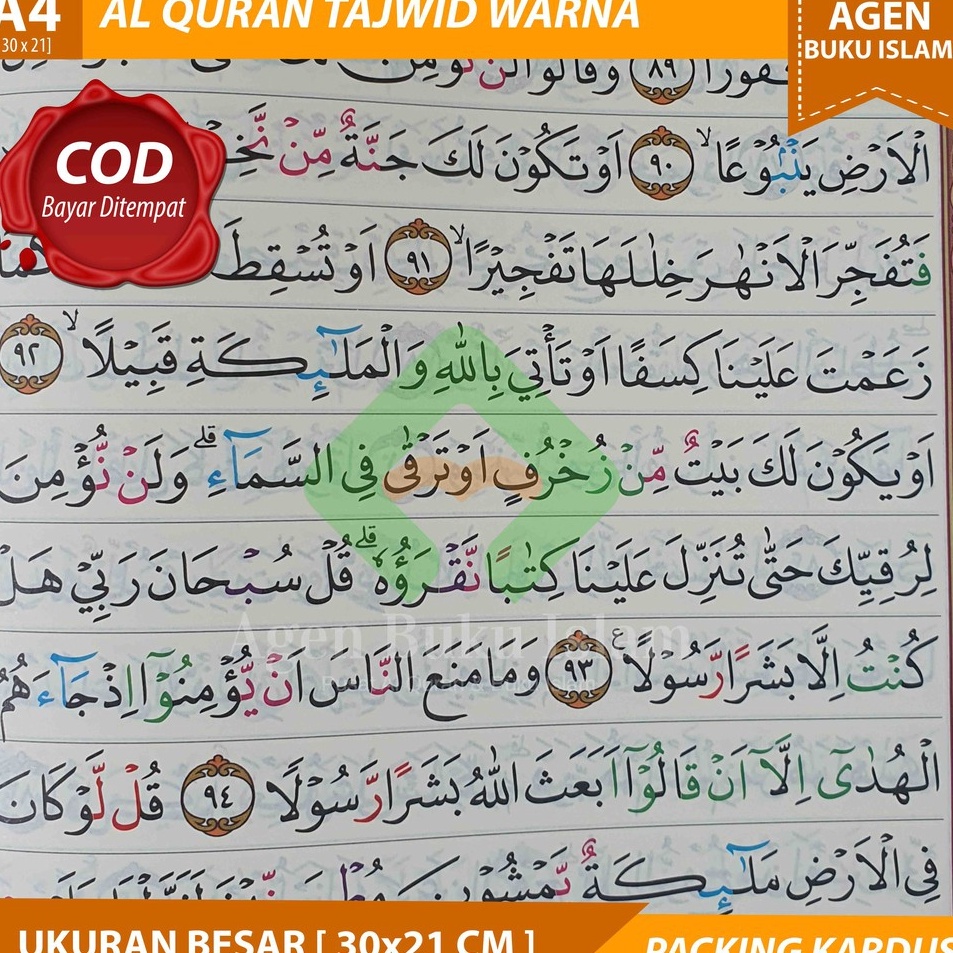 A4
[30 x 21]
AL QURAN TAJWID WARNA
AGEN
BUKU ISLAM
COD
Bayar Ditempat
٨٩ وَقَالُوْا لَنْ نُّؤْمِنَ
الْاَرْضِ يَنْۢبُوْعًاۙ ٩٠ اَوْ تَكُوْنَ لَكَ جَنَّةٌ مِّنْ
فَتُفَجِّرَ الْاَنْهٰرَ خِلٰلَهَا تَفْجِيْرًاۙ ٩١ اَوْ تُسْقِطَ
زَعَمْتَ عَلَيْنَا كِسَفًا اَوْ تَأْتِيَ بِاللّٰهِ وَالْمَلٰۤىِٕكَةِ قَبِيْلًاۙ ٩٢
اَوْ يَكُوْنَ لَكَ بَيْتٌ مِّنْ زُخْرُفٍ اَوْ تَرْقٰى فِى السَّمَاۤءِۗ وَلَنْ نُّؤْمِنَ
لِرُقِيِّكَ حَتّٰى تُنَزِّلَ عَلَيْنَا كِتٰبًا نَّقْرَؤُهٗۗ قُلْ سُبْحَانَ رَبِّيْ هَلْ
كُنْتُ اِلَّا بَشَرًا رَّسُوْلًا ٩٣ وَمَا مَنَعَ النَّاسَ اَنْ يُّؤْمِنُوْٓا اِذْ جَاۤءَهُمُ
الْهُدٰىٓ اِلَّآ اَنْ قَالُوْٓا اَبَعَثَ اللّٰهُ بَشَرًا رَّسُوْلًا ٩٤ قُلْ لَّوْ كَانَ
فِى الْاَرْضِ مَلٰۤىِٕكَةٌ يَّمْشُوْنَ
Agen Buku Islam
UKURAN BESAR [ 30x21 CM ]
PACKING KARDUS